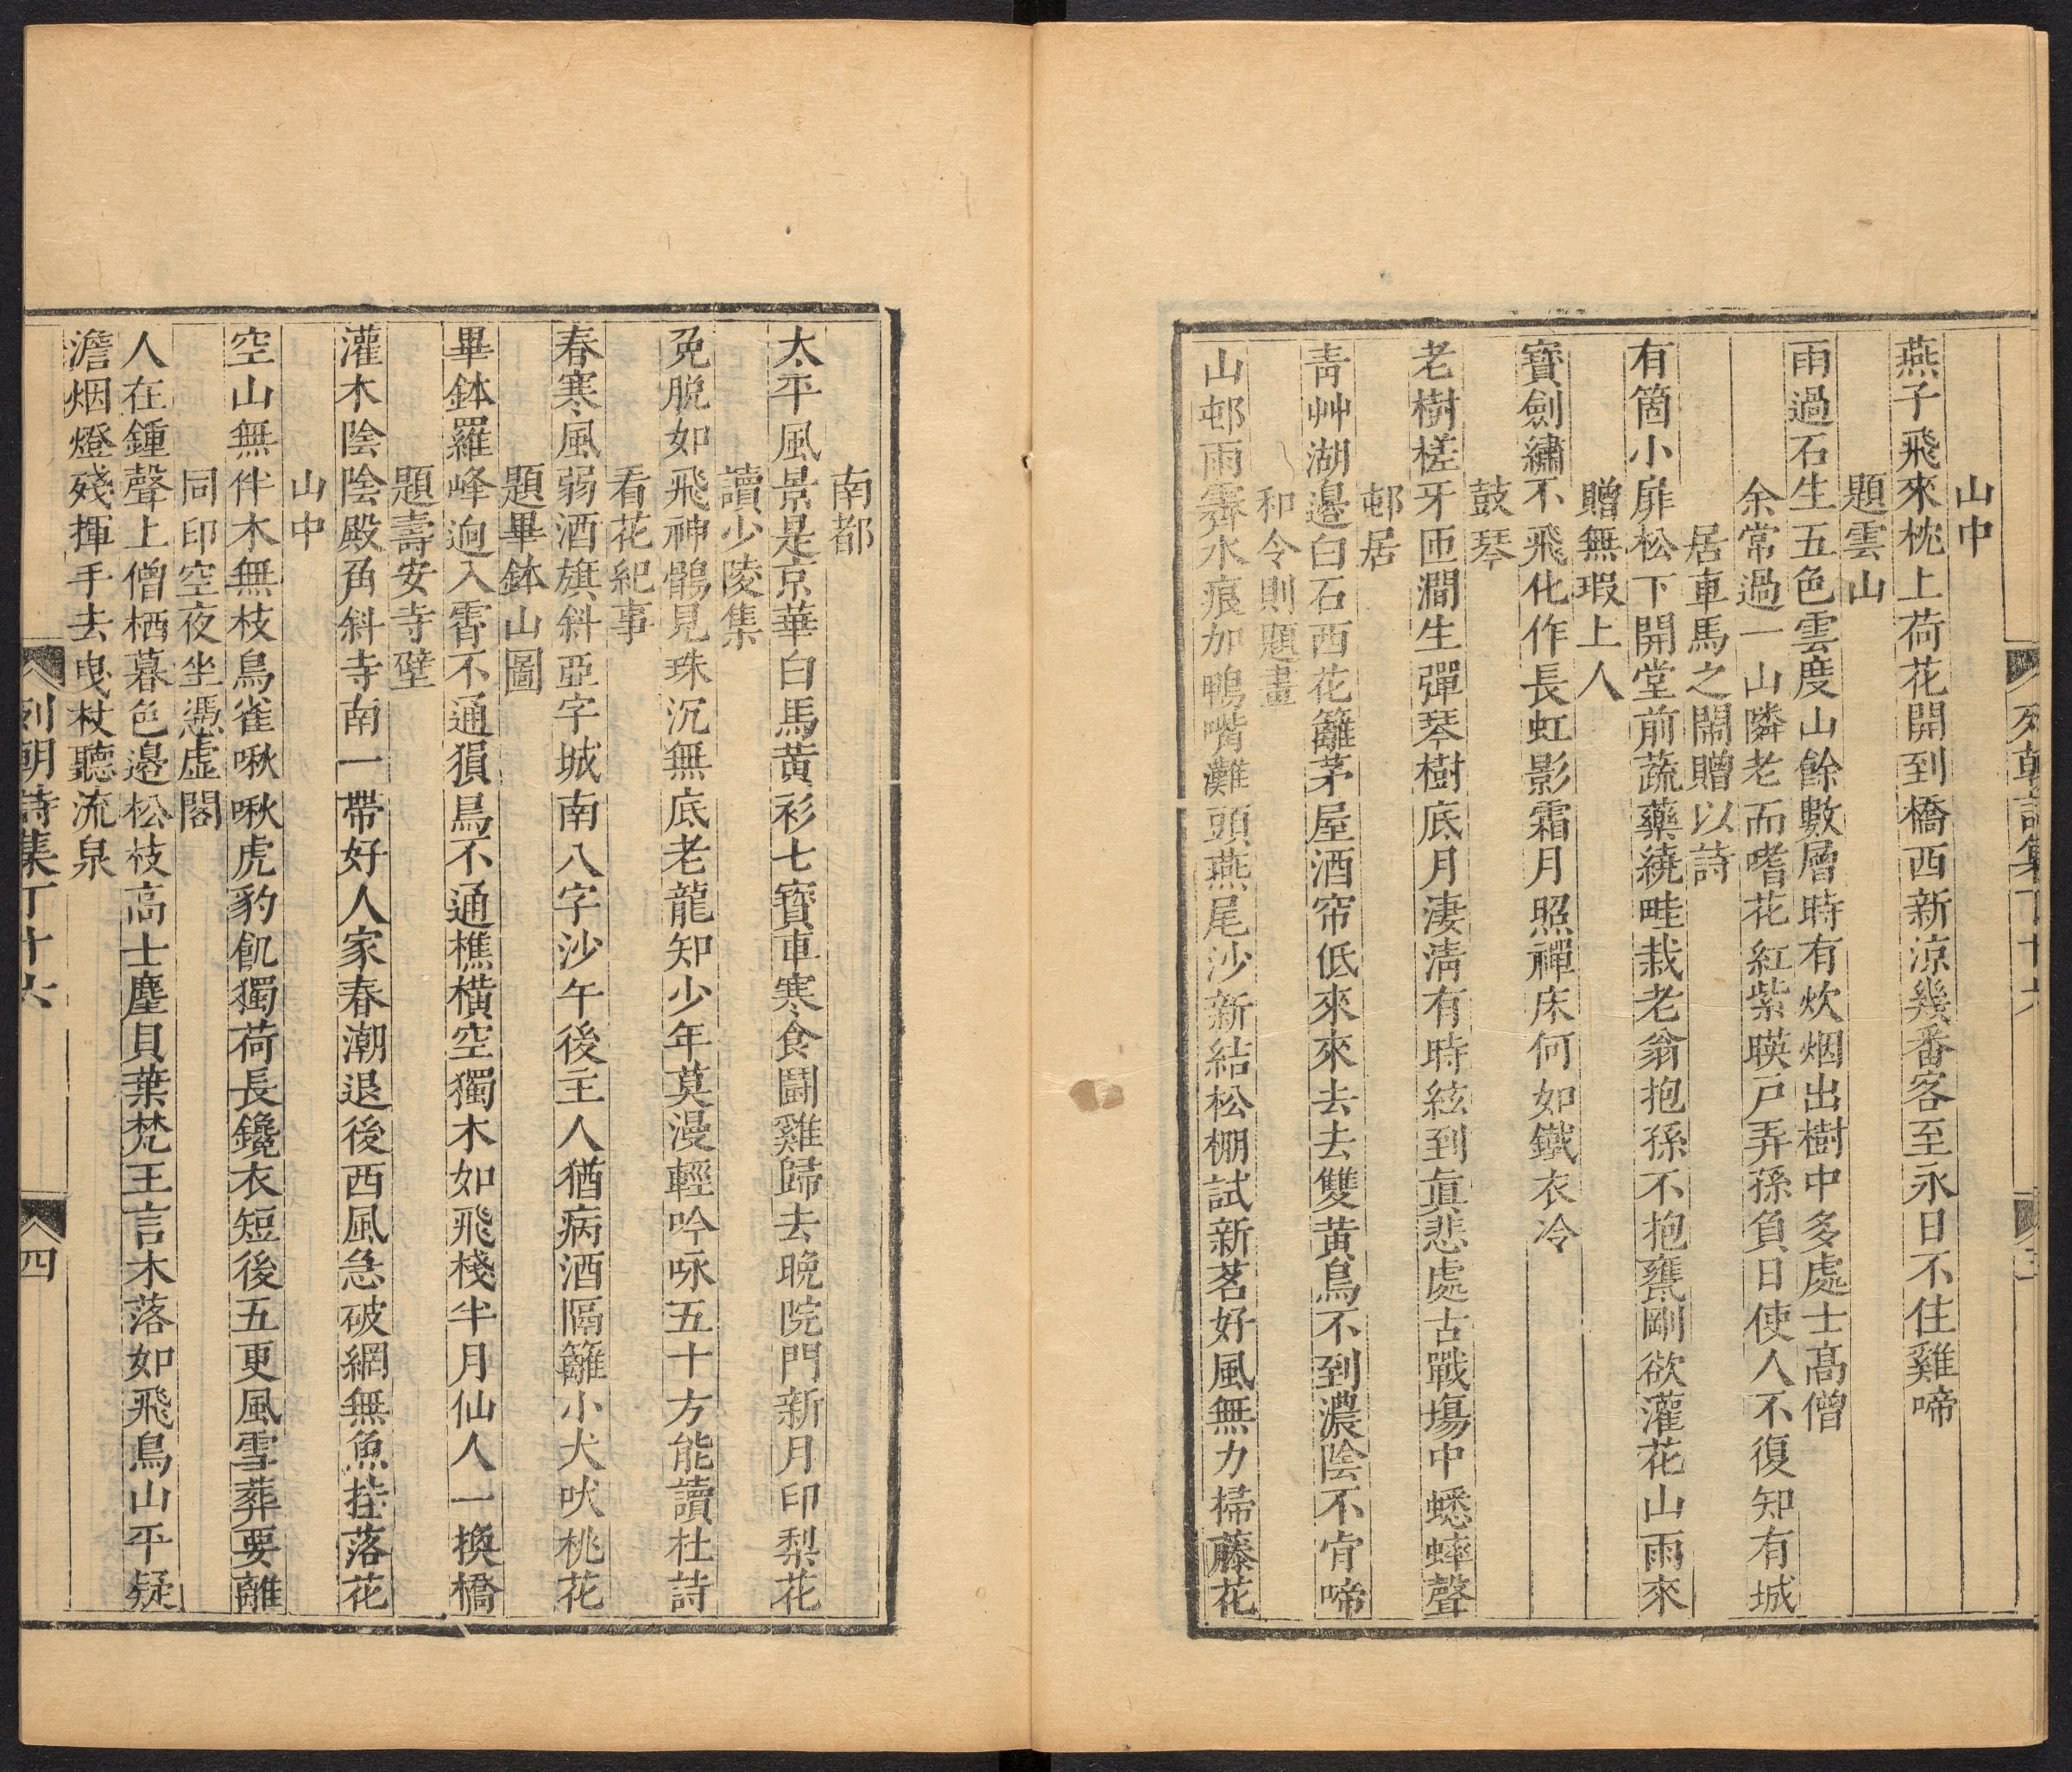 山中
燕子飛來枕上荷花開到橋西新涼幾番客至永日不住雞啼
題雲山
雨過石生五色雲度山餘數層時有炊烟出樹中多處士高僧
余常過一山隣老而嗜花紅紫暎戸弄孫負日使人不復知有城
居車馬之鬧贈以詩
有箇小扉松下開堂前蔬藥繞畦栽老翁抱孫不抱甕剛欲灌花山雨來
贈無瑕上人
寶劍繡不飛化作長虹影霜月照禪床何如鐵衣冷
鼓琴
老樹槎牙匝澗生彈琴樹底月淒淸有時絃到眞悲處古戰塲中蟋蟀聲
邨居
靑艸湖邉白石西花籬茅屋酒帘低來來去去雙黃鳥不到濃陰不肯啼
和令則題畫
山邨雨霽水痕加鴨嘴灘頭燕尾沙新結松棚試新茗好風無力掃藤花
南都
太平風景是京華白馬黃衫七寶車寒食鬪雞歸去晚院門新月印梨花
讀少陵集
免脫如飛神鶻見珠沉無底老龍知少年莫漫輕吟咏五十方能讀杜詩
看花紀事
春寒風弱酒旗斜亞字城南八字沙午後主人猶病酒隔籬小犬吠桃花
題畢鉢山圖
畢鉢羅峰逈入霄不通猨鳥不通樵橫空獨木如飛棧半月仙人一換橋
題壽安寺壁
灌木陰陰殿角斜寺南一帶好人家春潮退後西風急破網無魚挂落花
山中
空山無伴木無枝鳥雀啾啾虎豹飢獨荷長鑱衣短後五更風雪葬要離
同印空夜坐憑虛閣
人在鍾聲上僧栖暮色邉松枝高士麈貝葉梵王言木落如飛鳥山平疑
澹烟燈殘揮手去曳杖聽流泉
列朝詩集丁十六
四